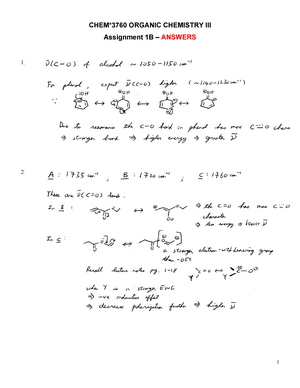 CHEM*3760 ORGANIC CHEMISTRY III
Assignment 1B – ANSWERS
1. ν̄(C–O) of alcohol ~ 1050–1150 cm⁻¹
For phenol, expect ν̄(C–O) higher (~1140–1230 cm⁻¹)
∵ OH ↔ OH ↔ OH ↔ OH
Due to resonance the C–O bond in phenol has more C=O character
⇒ stronger bond ⇒ higher energy ⇒ greater ν̄
2. A : 1735 cm⁻¹ , B : 1720 cm⁻¹ , C : 1760 cm⁻¹
These are ν̄(C=O) bands.
In B : ↔ ⇒ the C=O has more C–O
character
⇒ low energy ⇒ lower ν̄
In C : ↔
a stronger electron-withdrawing group
than –OEt
Recall lecture notes pg. 1-18
when Y is a stronger EWG
⇒ -ve inductive effect
⇒ decrease polarization further ⇒ higher ν̄
1